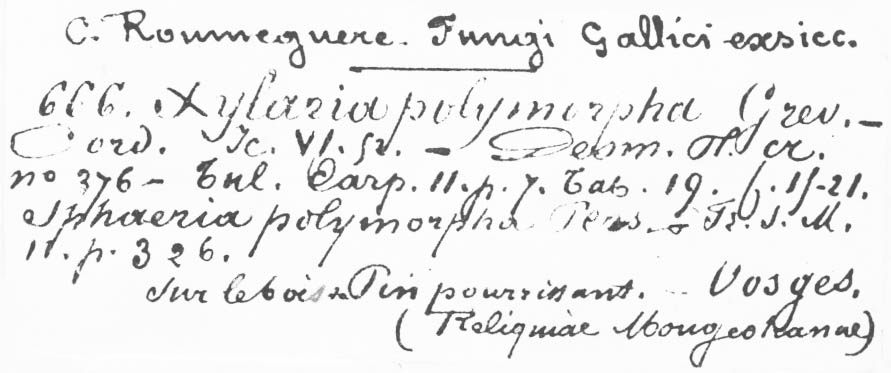 C. Roumeguere. Fungi Gallici exsicc.
666. Xylaria polymorpha Grev. –
Cord. Ic. VI. 52. – Desm. Pl. cr.
no 376 – Tul. Carp. 11. p. 7. Tab. 19. f. 15-21.
Sphaeria polymorpha Pers. Fr. S. M.
11. p. 326.
Sur le bois de Pin pourrissant. – Vosges.
(Reliquiae Mougeotianae)